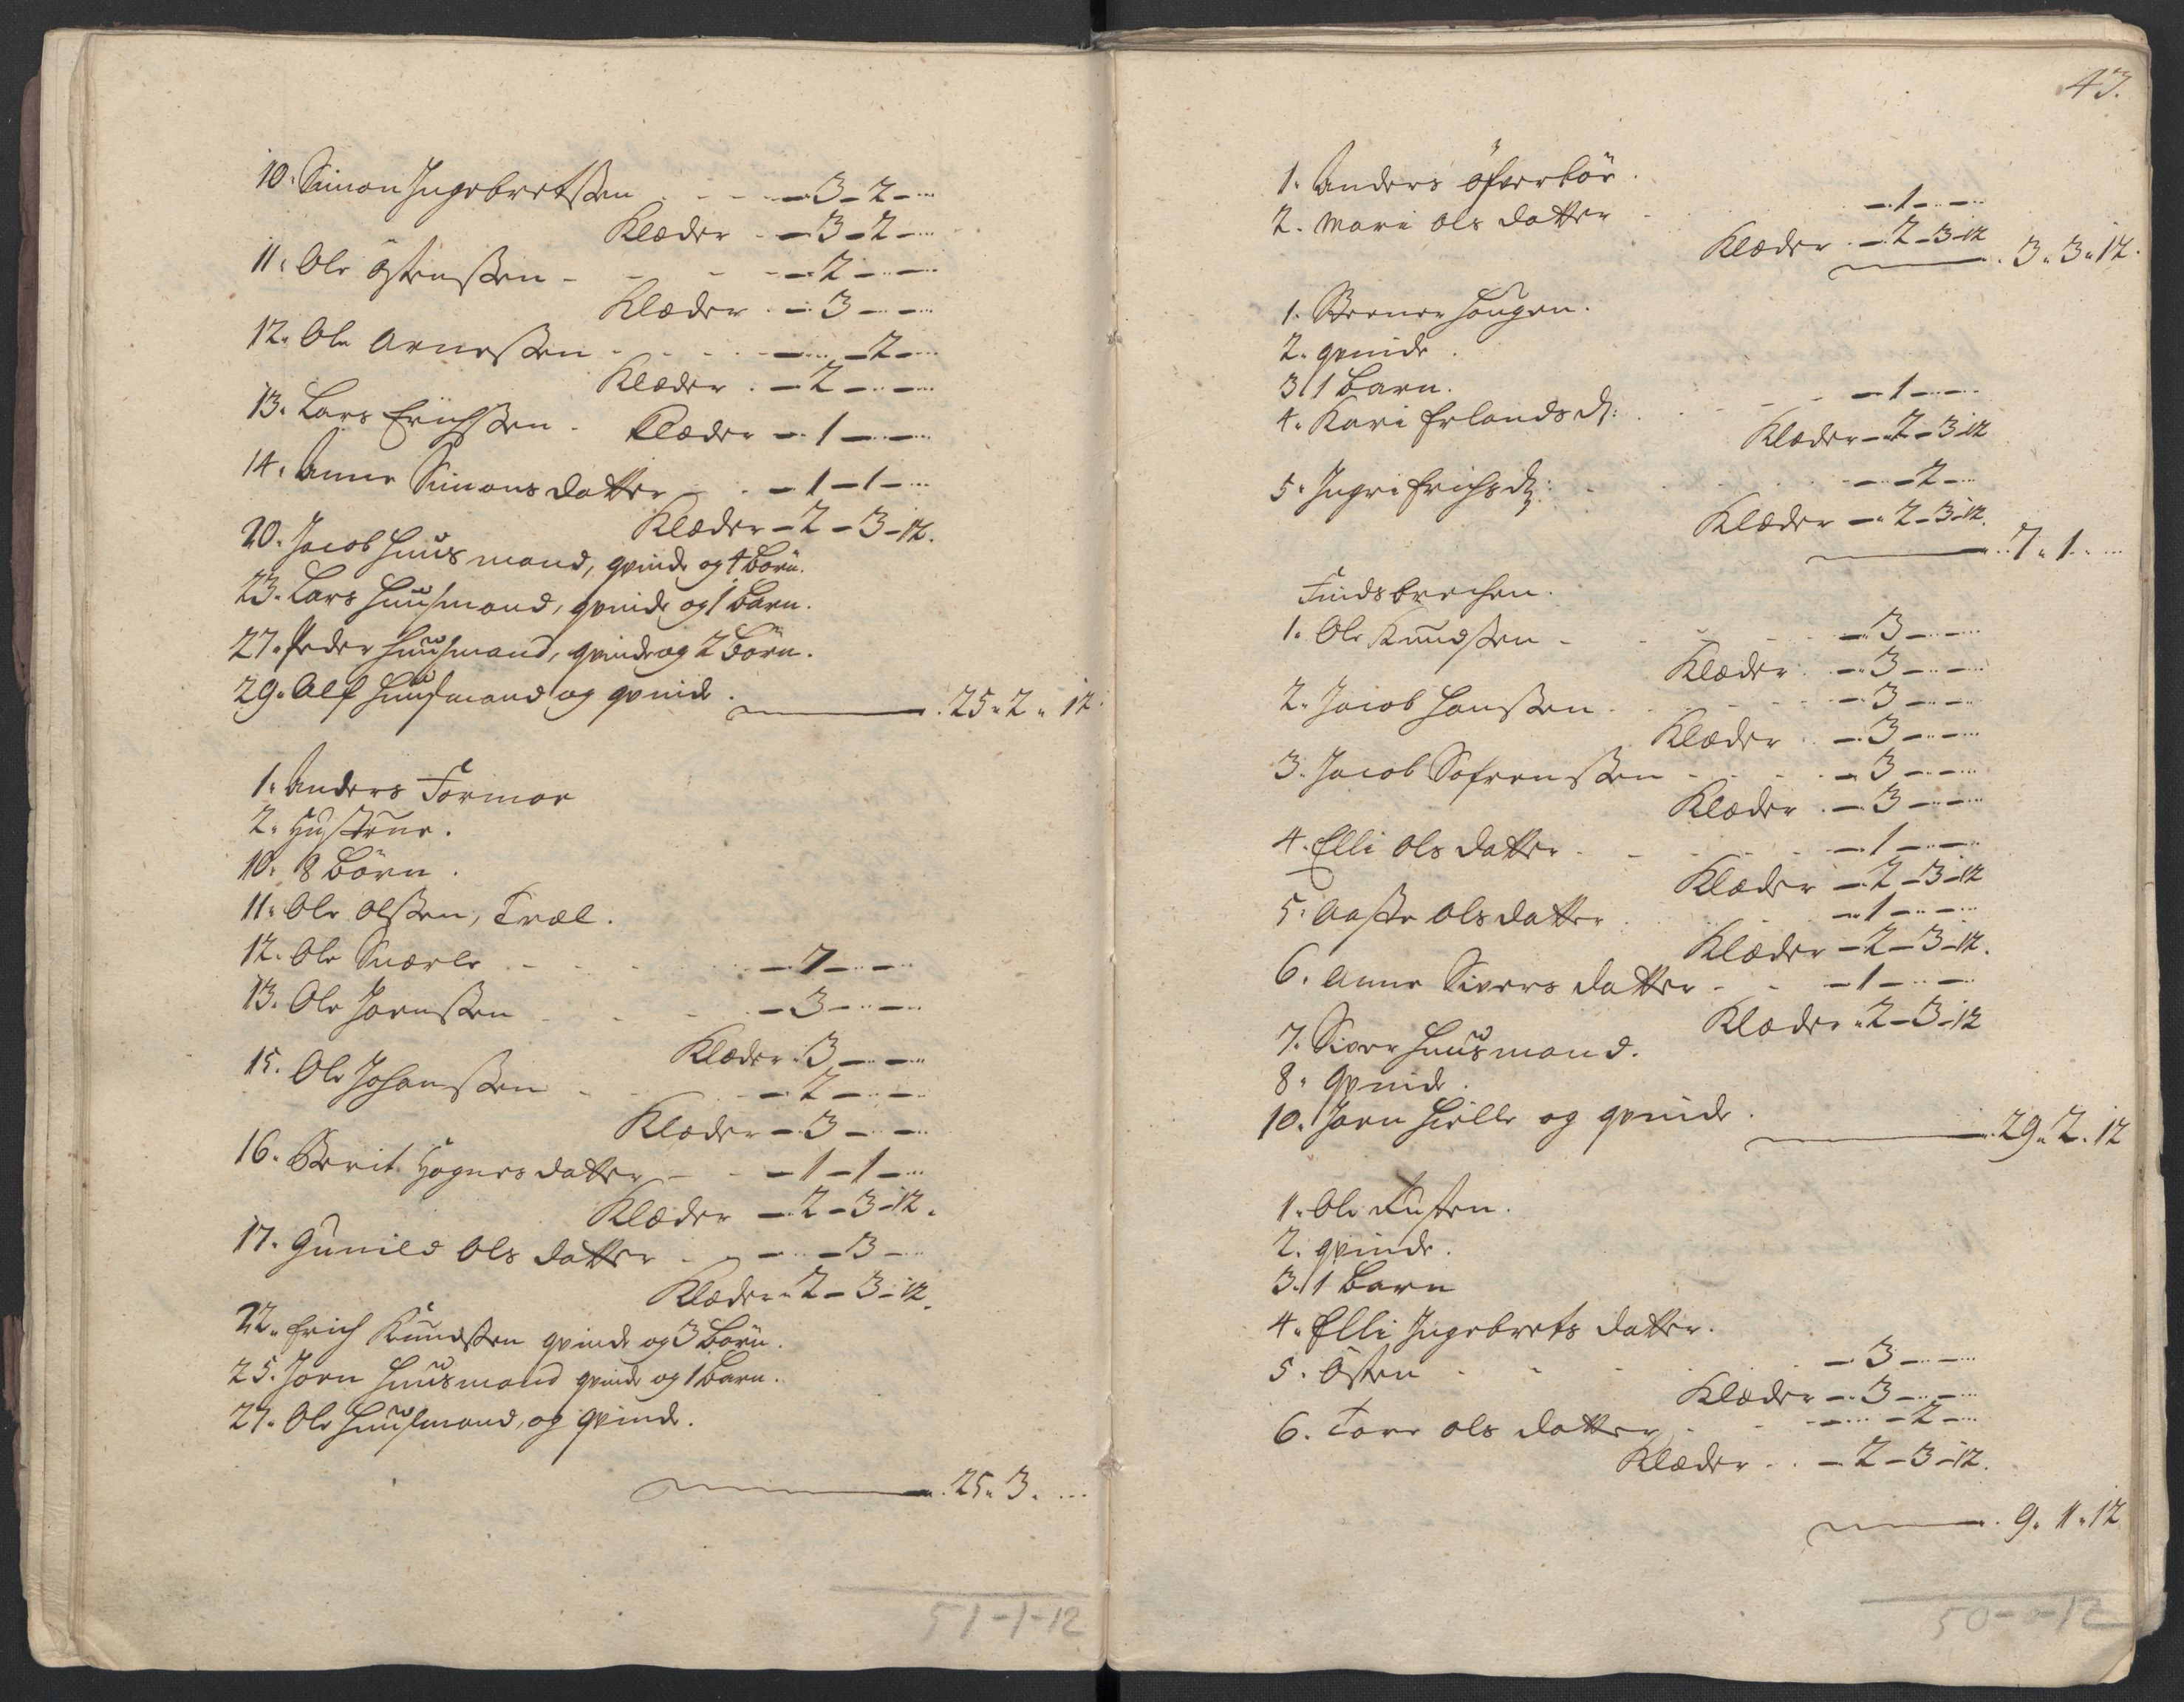 10. Simon Ingebretssen - - - 3 - 2 - ...
Klæder - 3 - 2 - ...
11. Ole Østenssen - - - 2 - .. - ...
Klæder - 3 - .. - ...
12. Ole Arnessen - - - ... - 2 - ...
Klæder - 2 - .. - ...
13. Lars Erichssen - Klæder - 1 - .. - ...
14. Anne Simons datter - 1 - 1 - ...
Klæder - 2 - 3 - 12.
20. Jacob Huusmand, qvinde og 4 Börn.
23. Lars Huusmand, qvinde og 1 Barn.
27. Peder Huusmand, qvinde og 2 Börn.
29. Alf Huusmand og qvinde.
25 " 2 " 12.
1. Anders Formoe
2. Hustrue.
10. 8 Börn.
11. Ole Olssen, Træl.
12. Ole Snerle - - - 7 - .. - ...
13. Ole Joenssen - - - 3 - .. - ...
Klæder - 3 - .. - ...
15. Ole Johanssen - - - 2 - .. - ...
Klæder - 3 - .. - ...
16. Berit Hognes datter - - 1 - 1 - ...
Klæder - 2 - 3 - 12.
17. Gunild Ols datter - - .. - 3 - ...
Klæder - 2 - 3 - 12.
22. Erich Knudssen qvinde og 3 Börn.
25. Joen Huusmand qvinde og 1 Barn.
27. Ole Huusmand, og qvinde.
25 " 3 . ...
51-1-12
47.
1. Anders Öfverböe.
2. Mari Ols datter - 1 - .. - ...
Klæder - 2 - 3 - 12
3 " 3 " 12.
1. Berner Haugen.
2. qvinde.
3. 1 Barn.
4. Kari Erlandsdr: - 1 - .. - ...
Klæder - 2 - 3 - 12
5. Ingri Erichsdr: - .. - 2 - ...
Klæder - 2 - 3 - 12.
7 " 1 " ...
Findsbrechen.
1. Ole Knudssen - - 3 - .. - ...
Klæder - 3 - .. - ...
2. Jacob Hanssen - 3 - .. - ...
Klæder - 3 - .. - ...
3. Jacob Sofrenssen - 3 - .. - ...
Klæder - 3 - .. - ...
4. Elli Ols datter - - 1 - .. - ...
Klæder - 2 - 3 - 12
5. Aaste Ols datter - 1 - .. - ...
Klæder - 2 - 3 - 12.
6. Anne Sivers datter - - 1 - .. - ...
Klæder - 2 - 3 - 12
7. Siver Huusmand.
8. Qvinde.
10. Joen Hielle og qvinde.
29 " 2 . 12
1. Ole
2. qvinde.
3. 1 Barn
4. Elli Ingebrets datter.
5. Østen - - 3 - .. - ...
Klæder - 3 - .. - ...
6. Tore Ols datter - .. - 2 - ...
Klæder - 2 - 3 - 12.
9. 1 " 12
50-0-12